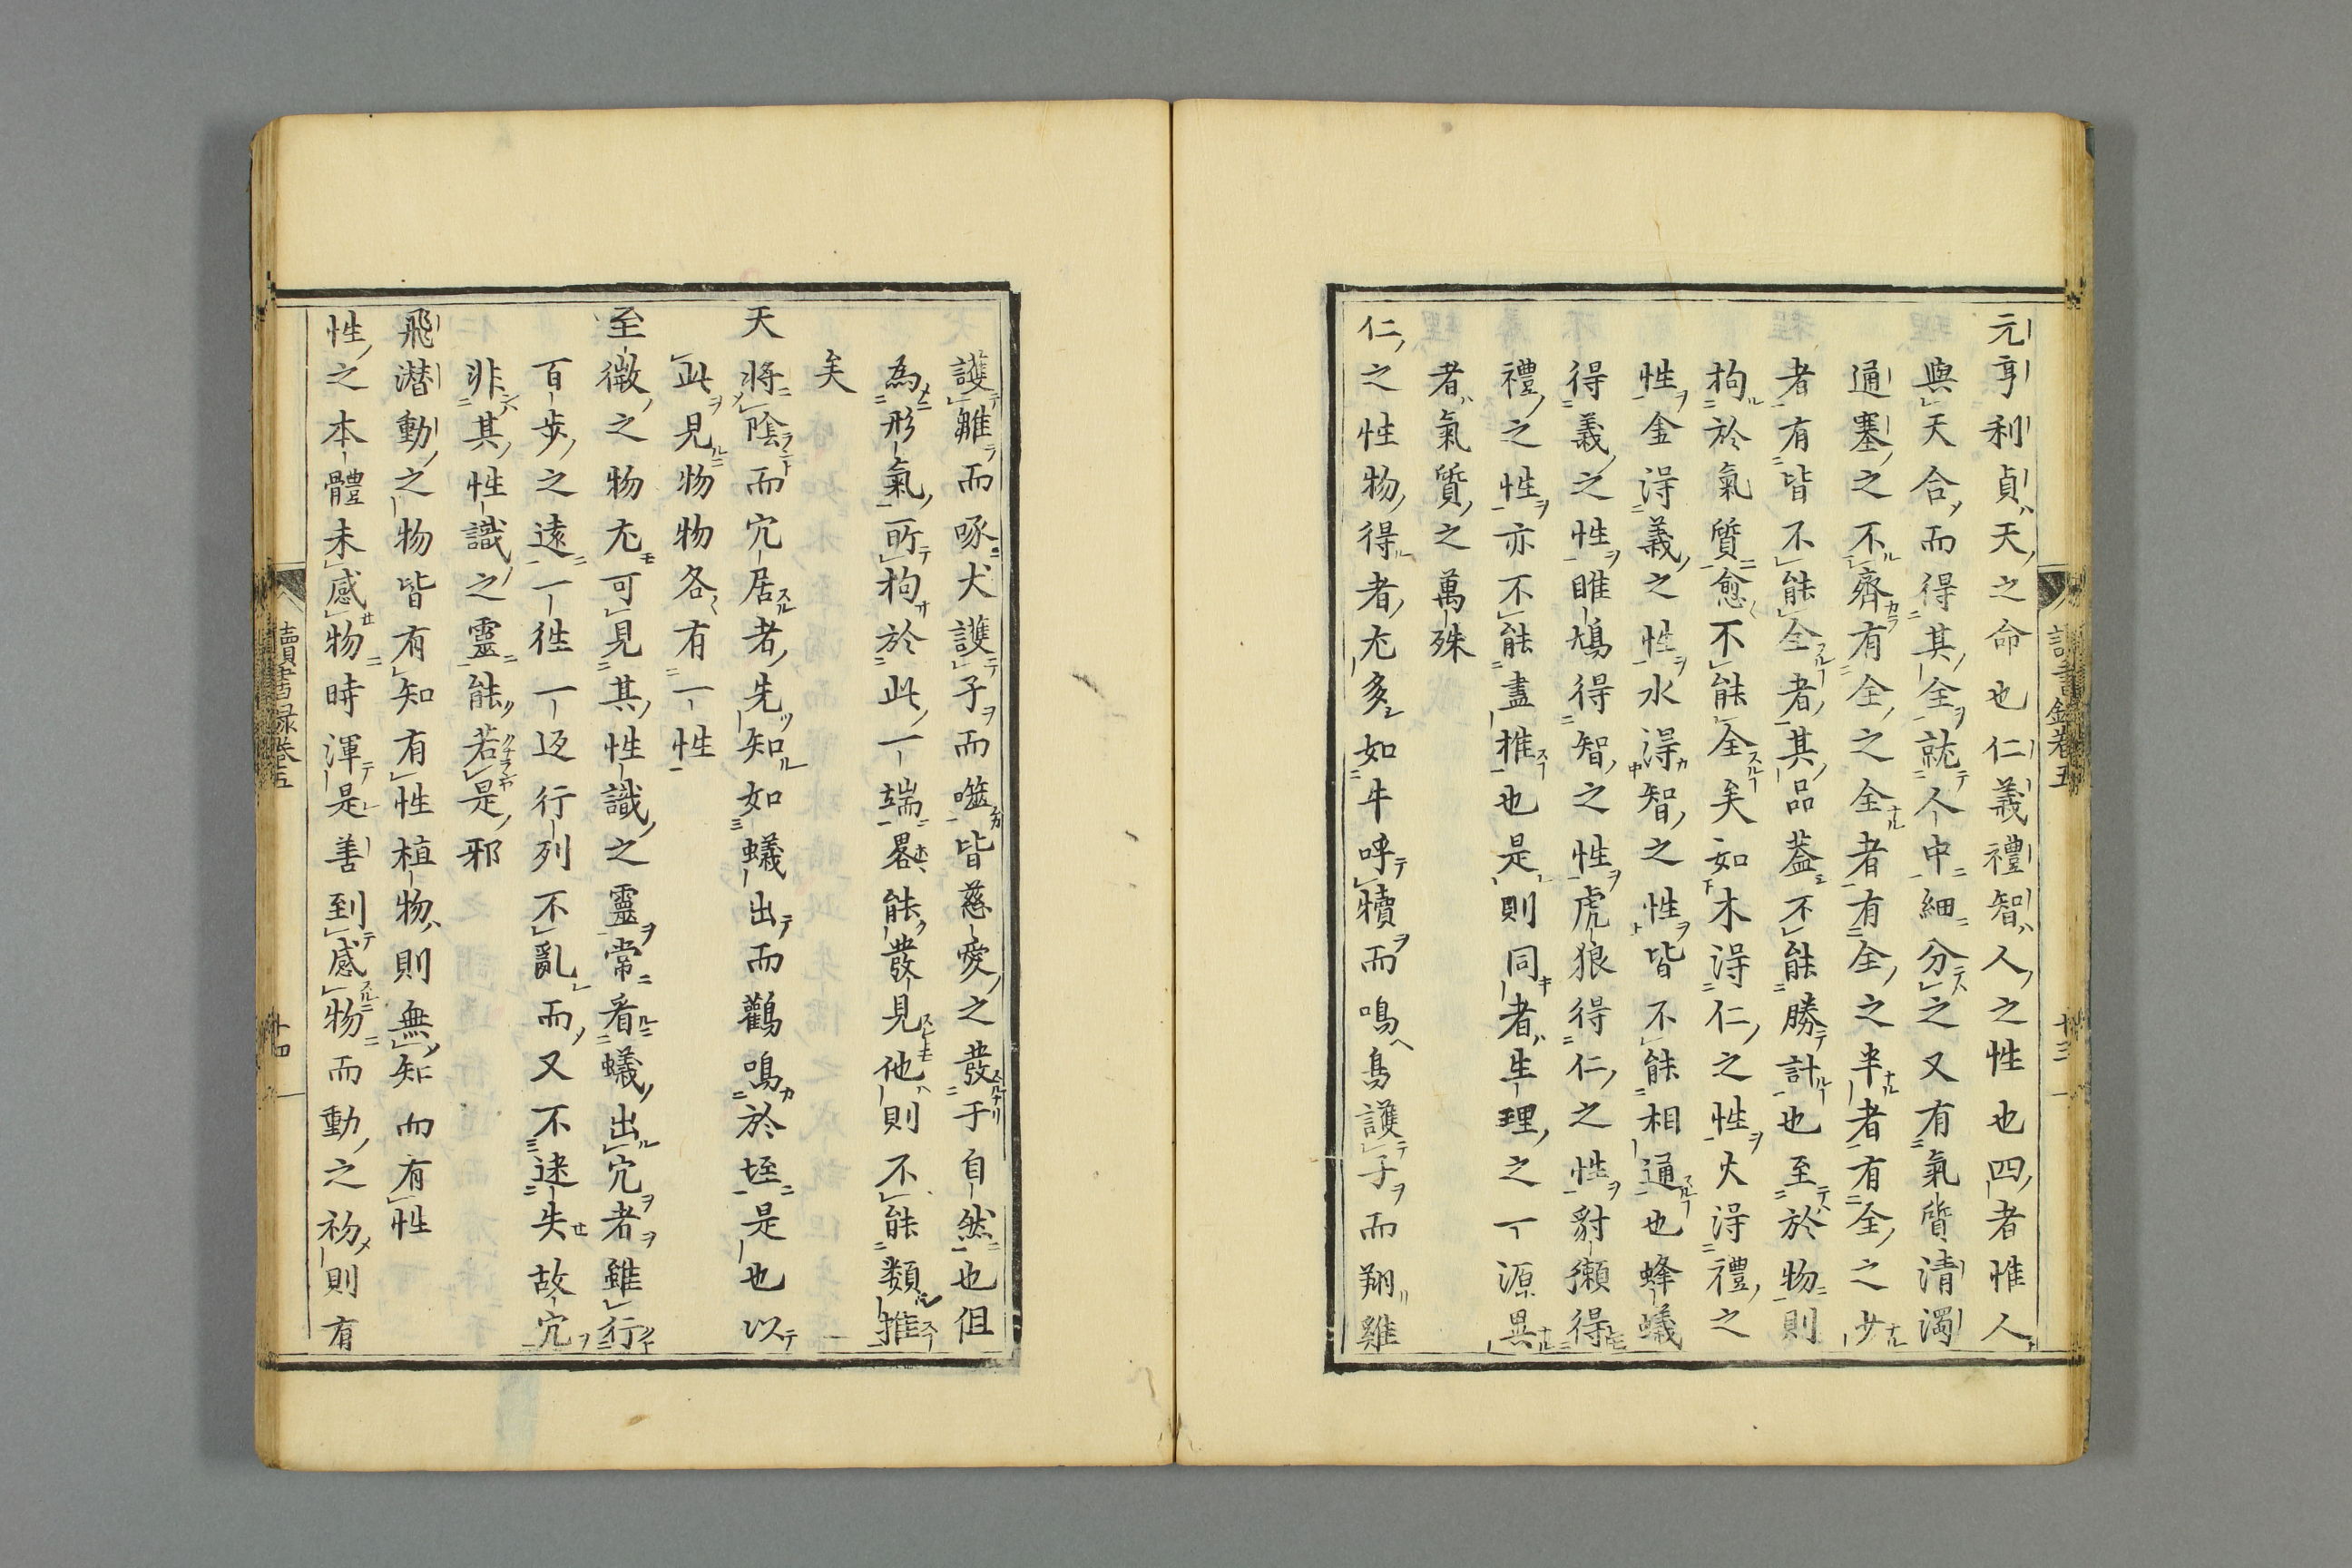 讀書錄卷五
十三
元亨利貞天之命也仁義禮智人之性也四者惟人
與天合而得其全就人中細分之又有氣質清濁
通塞之不齊有全之全者有全之半者有全之少
者有皆不能全者其品蓋不能勝計也至於物則
拘於氣質愈不能全矣如木得仁之性火得禮之
性金得義之性水得智之性皆不能相通也蜂蟻
得義之性雎鳩得智之性虎狼得仁之性豺獺得
禮之性亦不能盡推也是則同者生理之一源異
者氣質之萬殊
仁之性物得者尤多如牛呼犢而鳴鳥護子而翔雞
護雛而啄犬護子而噬皆慈愛之發于自然也但
為形氣所拘於此一端畧能發見他則不能類推
矣
天將陰而穴居者先知如蟻出而鸛鳴於垤是也以
此見物物各有一性
至微之物尤可見其性識之靈常看蟻出穴者雖行
百步之遠一徃一返行列不亂而又不迷失故穴
非其性識之靈能若是邪
飛潛動之物皆有知有性植物則無知而有性
性之本體未感物時渾是善到感物而動之初則有
讀書录卷五
十四